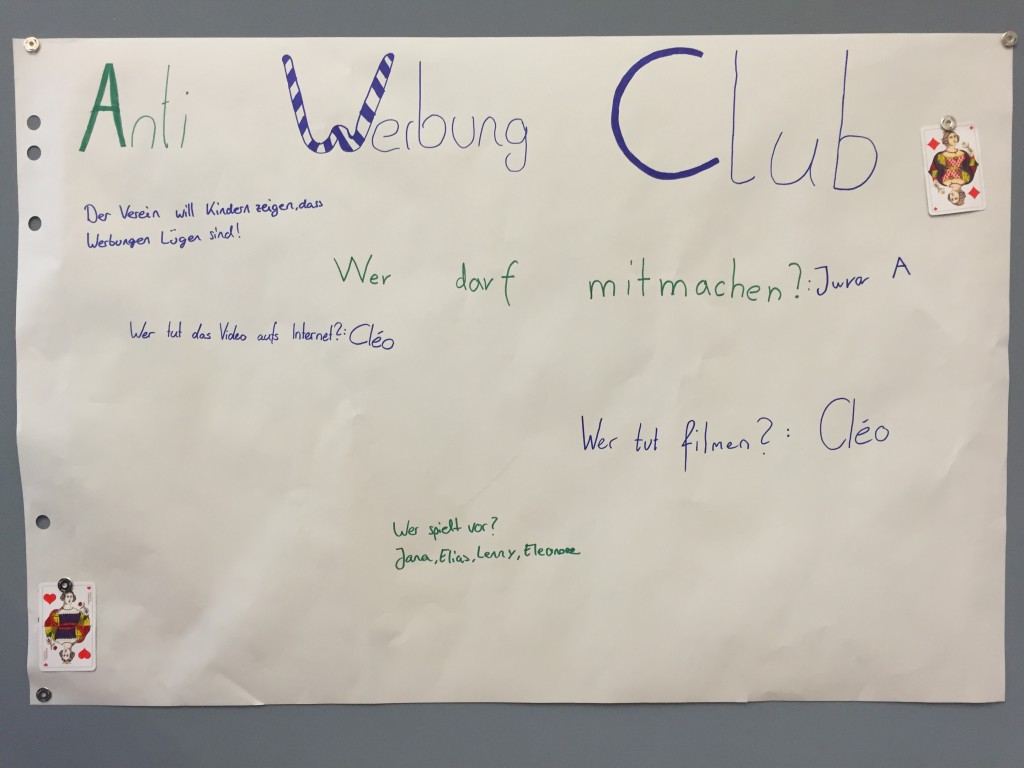 Anti Werbung Club
Der Verein will Kindern zeigen, dass
Werbungen Lügen sind!
Wer darf mitmachen?: Jura A
Wer tut das Video aufs Internet?: Cléo
Wer tut filmen?: Cléo
Wer spielt vor?
Jana, Elias, Lenny, Eleonore